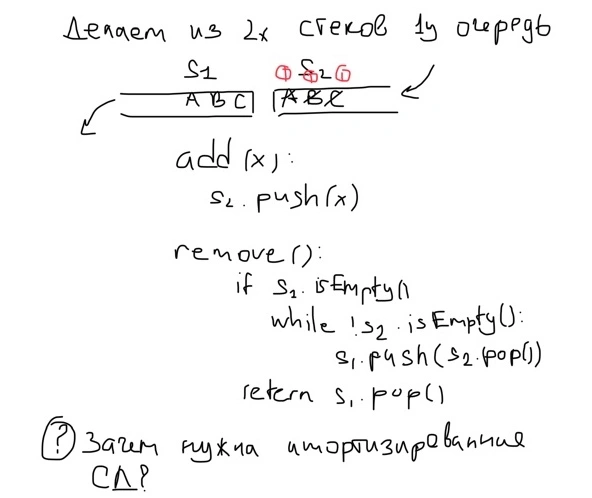 Делаем из 2х стеков 1у очередь
S1 S2
A B C A B C
add(x):
s2.push(x)
remove():
if s1.isEmpty()
while !s2.isEmpty():
s1.push(s2.pop())
retern s1.pop()
? Зачем нужна амортизированние
СЛ?